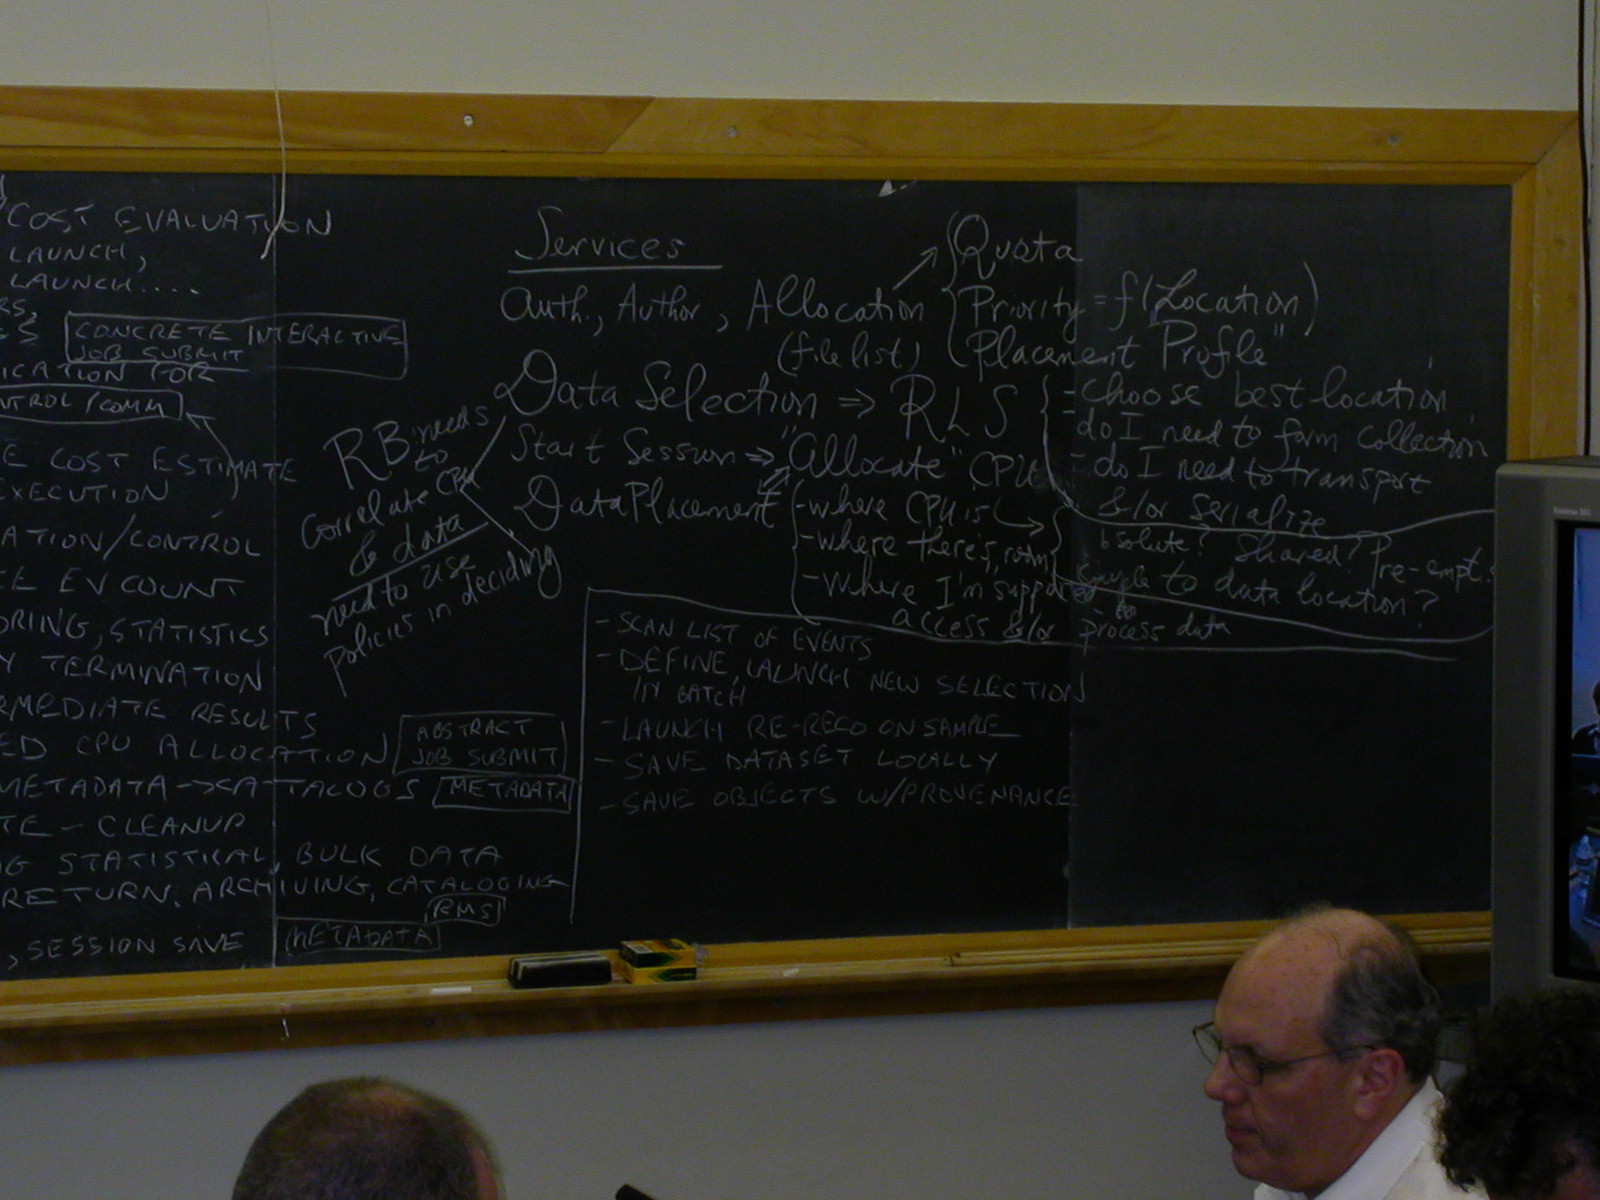 COST EVALUATION
LAUNCH,
LAUNCH....
RS,
CONCRETE INTERACTIVE
JOB SUBMIT
ICATION FOR
NTROL/COMM
E COST ESTIMATE
EXECUTION
ATION/CONTROL
EV COUNT
ORING, STATISTICS
Y TERMINATION
RMEDIATE RESULTS
ED CPU ALLOCATION
ABSTRACT
JOB SUBMIT
METADATA → CATALOGS METADATA
TE - CLEANUP
G STATISTICAL, BULK DATA
RETURN, ARCHIVING, CATALOGING
RMS
, SESSION SAVE METADATA
Services
Auth., Author, Allocation
(file list)
Quota
Priority = f(Location)
Placement Profile"
Data Selection ⇒ RLS
- choose best location
- do I need to form collection
- do I need to transport
&/or serialize
Start Session ⇒ "Allocate" CPU
Absolute? Shared? Pre-empt.
Data Placement
- where CPU is
- where there's room
- where I'm supposed to
access &/or process data
couple to data location?
RB needs
to
correlate CPU
& data
need to use
policies in deciding
- SCAN LIST OF EVENTS
- DEFINE, LAUNCH NEW SELECTION
IN BATCH
- LAUNCH RE-RECO ON SAMPLE
- SAVE DATASET LOCALLY
- SAVE OBJECTS W/PROVENANCE